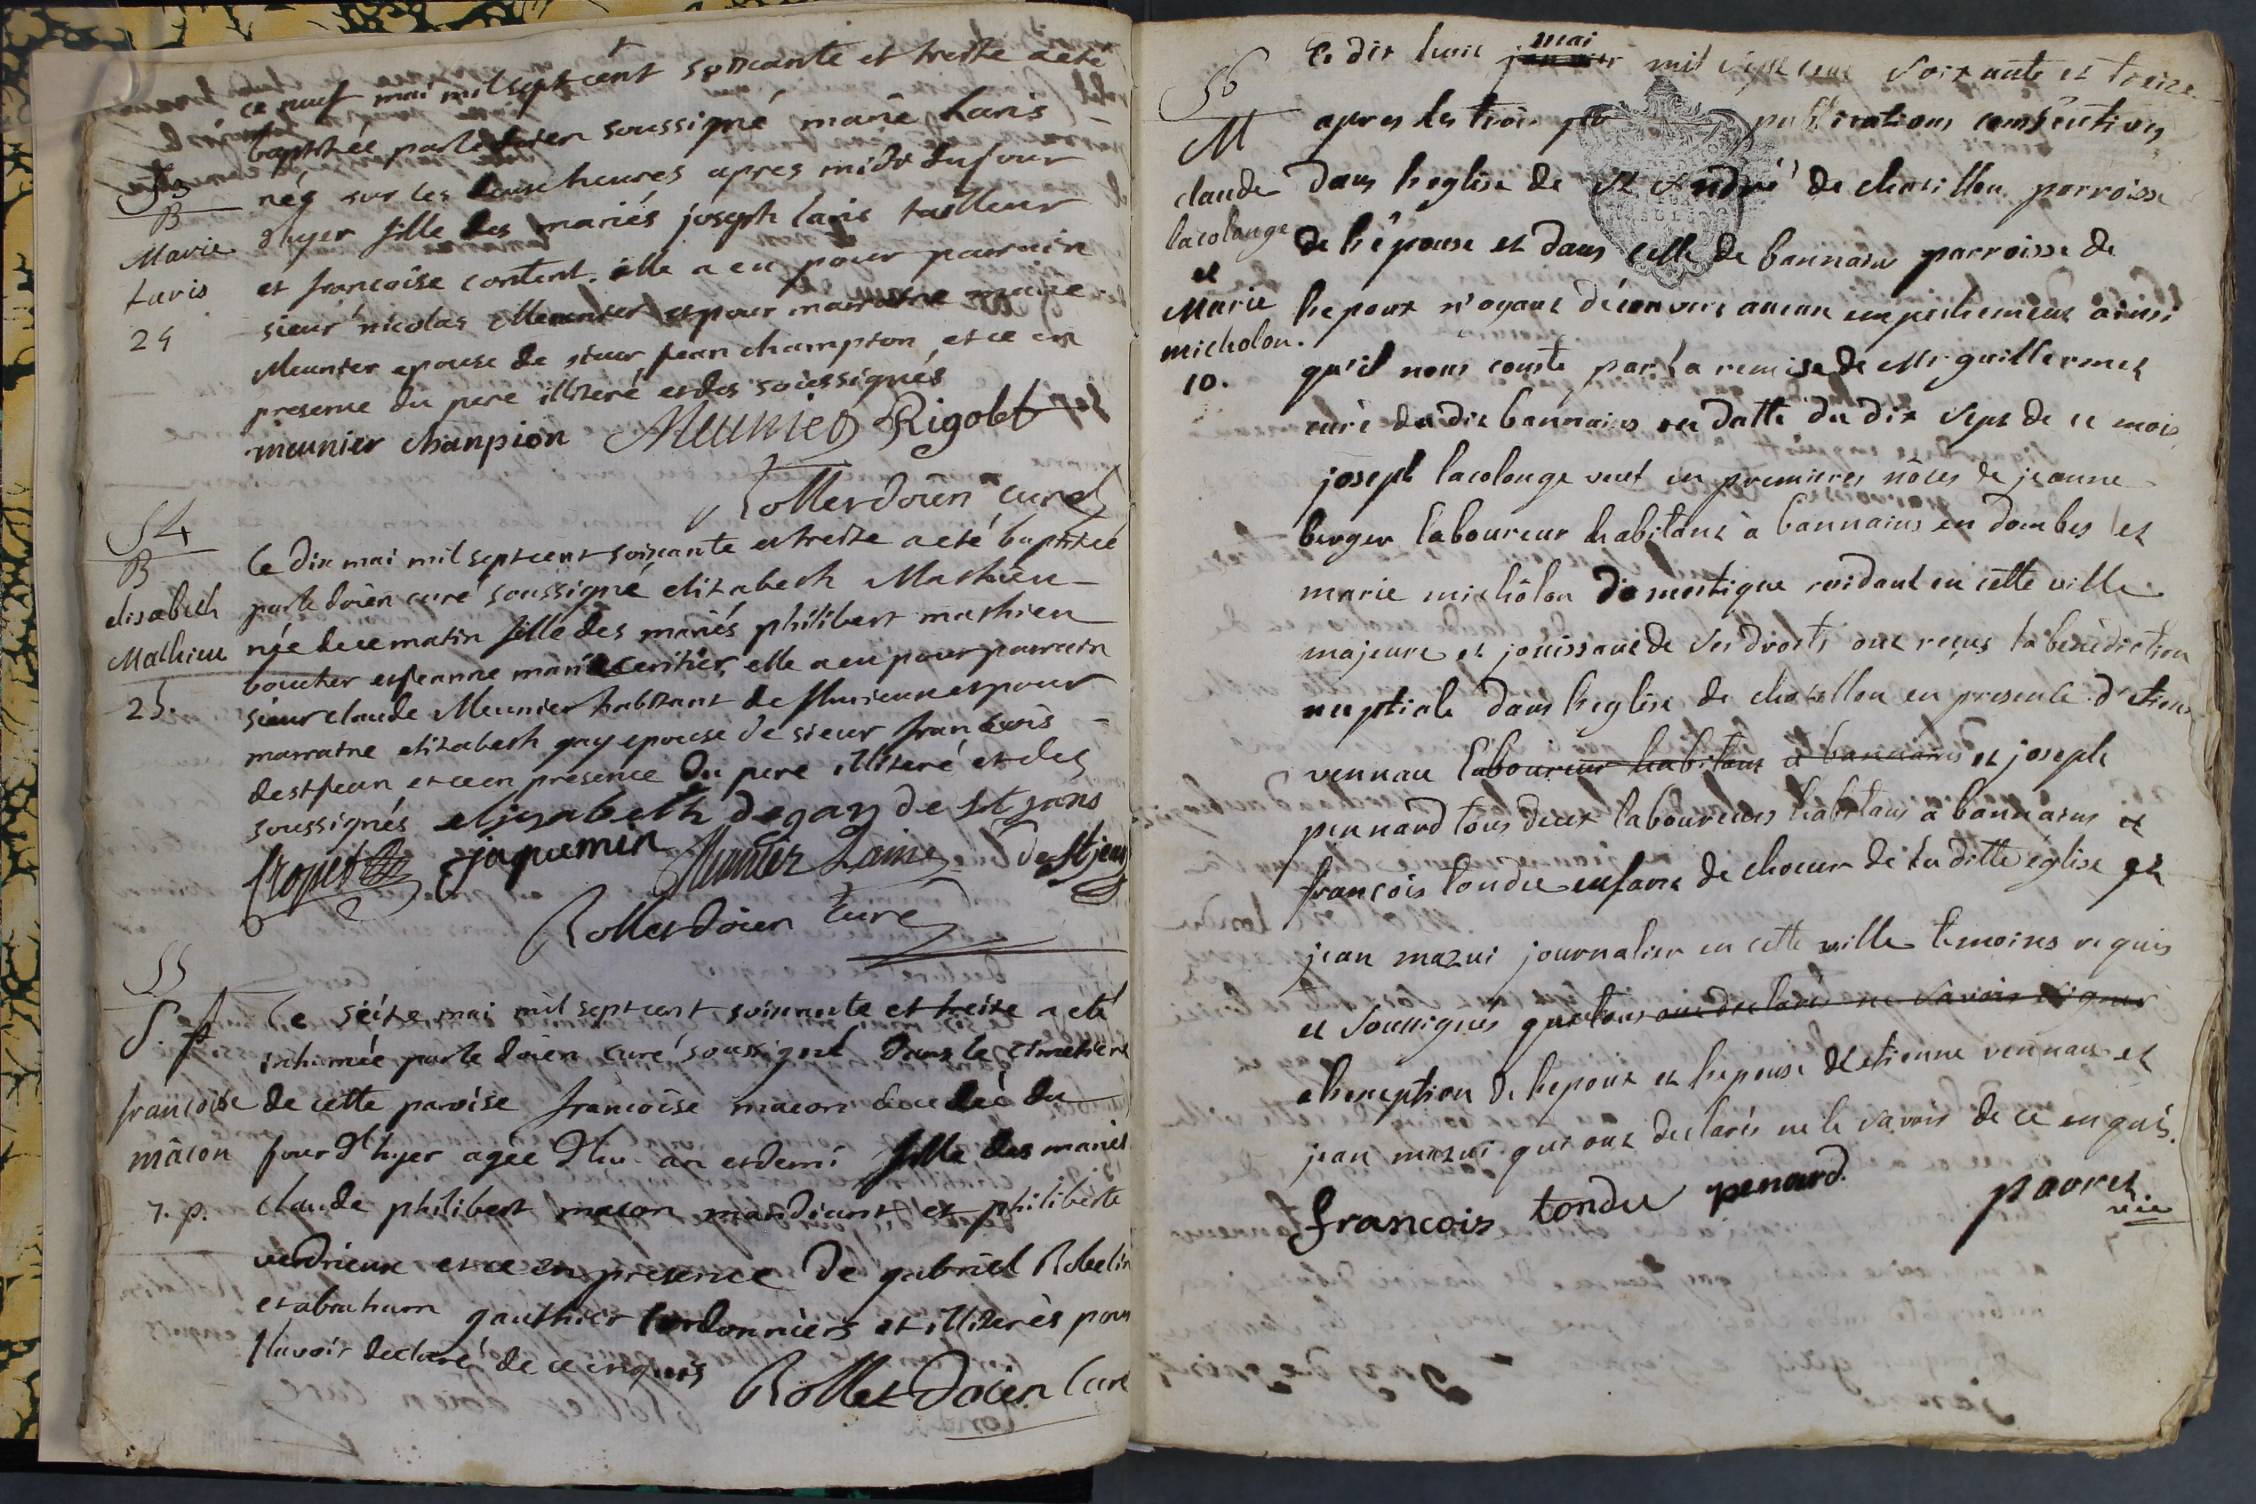 53
B
Marie
Laris
24
ce neuf mai mil sept cent soixante et treize a eté
baptisée par le doien soussigné marie Laris
née sur les deux heures apres midi du jour
d'hyer fille des mariés joseph laris tailleur
et francoise content. elle a eu pour parrain
sieur nicolas Meunier et pour marraine marie
Meunier epouse de sieur jean champion et ce en
presence du pere illiteré et des soussignés
meunier chanpion Meunier Rigolet
Rollet doien curé
54
B
elisabeth
Mathieu
25.
Ce dix mai mil sept cent soixante et treize a eté baptisée
par le doien curé soussigné elizabeth Mathieu
née de ce matin fille des mariés philibert mathieu
boucher et jeanne marie ceritier, elle a eu pour parrain
sieur claude Meunier habitant de fleurieux et pour
marraine elizabeth gay epouse de sieur francois
de st jean et ce en presence du pere illiteré et des
soussignés elizabeth degay de st jans
jaquemin Meunier Laine De St jean
Rollet doien curé
55
S. p
francoise
mâcon
7. p.
Ce séize mai mil sept cent soixante et treize a eté
inhumée par le doien curé soussigné dans le cimetiere
de cette paroise francoise macon decedée du
jour d'hyer agée d'un an et demi fille des mariés
claude philibert macon mandiant et philiberte
verdrieux et ce en presence de gabriel Robelin
et abraham gauthier cordonniers et illiterés pour
l'avoir declaré de ce enquis
Rollet Doien Curé
56
M
claude
lacolonge
et
Marie
micholon.
10.
Ce dix huit janvier mai mil sept cent soixante et treize
apres les trois pu publications consécutives
dans l'eglise de St André de chatillon parroisse
de l'épouse et dans celle de bannains parroisse de
l'epoux n'ayant découvert aucun empechement ainsi
qu'il nous conste par la remise de Mr guillermet
curé du dit bannains en datte du dix sept de ce mois
joseph lacolonge veuf en premieres nôces de jeanne
berger laboureur habitant à bannains en dombes et
marie michôlon domestique residant en cette ville
majeure et jouissant de ses droits ont reçus la bénédiction
nuptiale dans l'eglise de chatillon en presence d'etienne
vennau laboureur habitant a bannains et joseph
penard tous deux laboureurs habitans a bannains et
francois tondu enfant de choeur de la ditte église et
jean mazui journalier en cette ville temoins requis
et soussignés qui tous ont declarés ne savoir signer
a l'exception de l'epoux et l'epouse d'etienne vennau et
jean mazui qui ont declarés ne le savoir de ce enquis.
francois tondu penard. pavret
vic